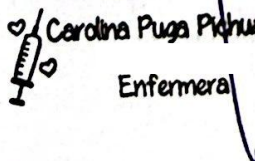 Carolina Puga
Enfermera